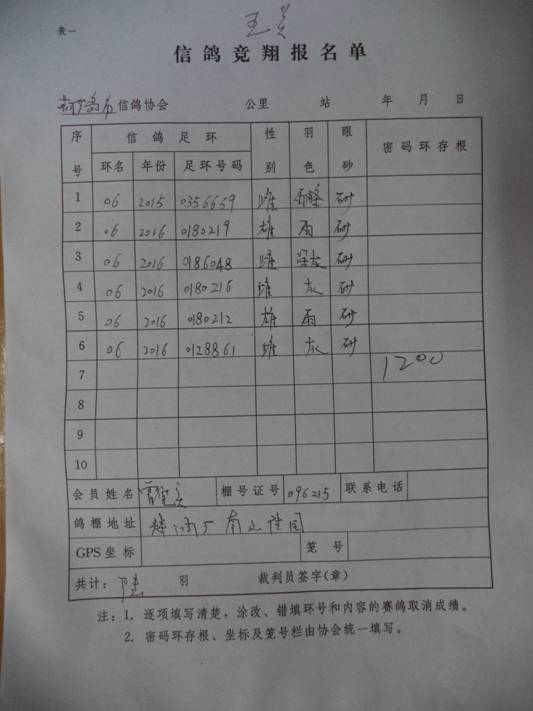 表一
信鸽竞翔报名单
信鸽协会 公里 站 年 月 日
序号 信鸽足环 性别 羽色 眼砂 密码环存根
环名 年份 足环号码
1 06 2015 0356659 雌 砂
2 06 2016 0180219 雄 雨 砂
3 06 2016 0186048 雌 砂
4 06 2016 0180216 雌 灰 砂
5 06 2016 0180212 雄 雨 砂
6 06 2016 0128861 雌 灰 砂
7 1200
8
9
10
会员姓名 棚号证号 096215 联系电话
鸽棚地址 南山佳园
GPS坐标 笼号
共计: 陆 羽 裁判员签字(章)
注:1. 逐项填写清楚,涂改、错填环号和内容的赛鸽取消成绩。
2. 密码环存根、坐标及笼号栏由协会统一填写。